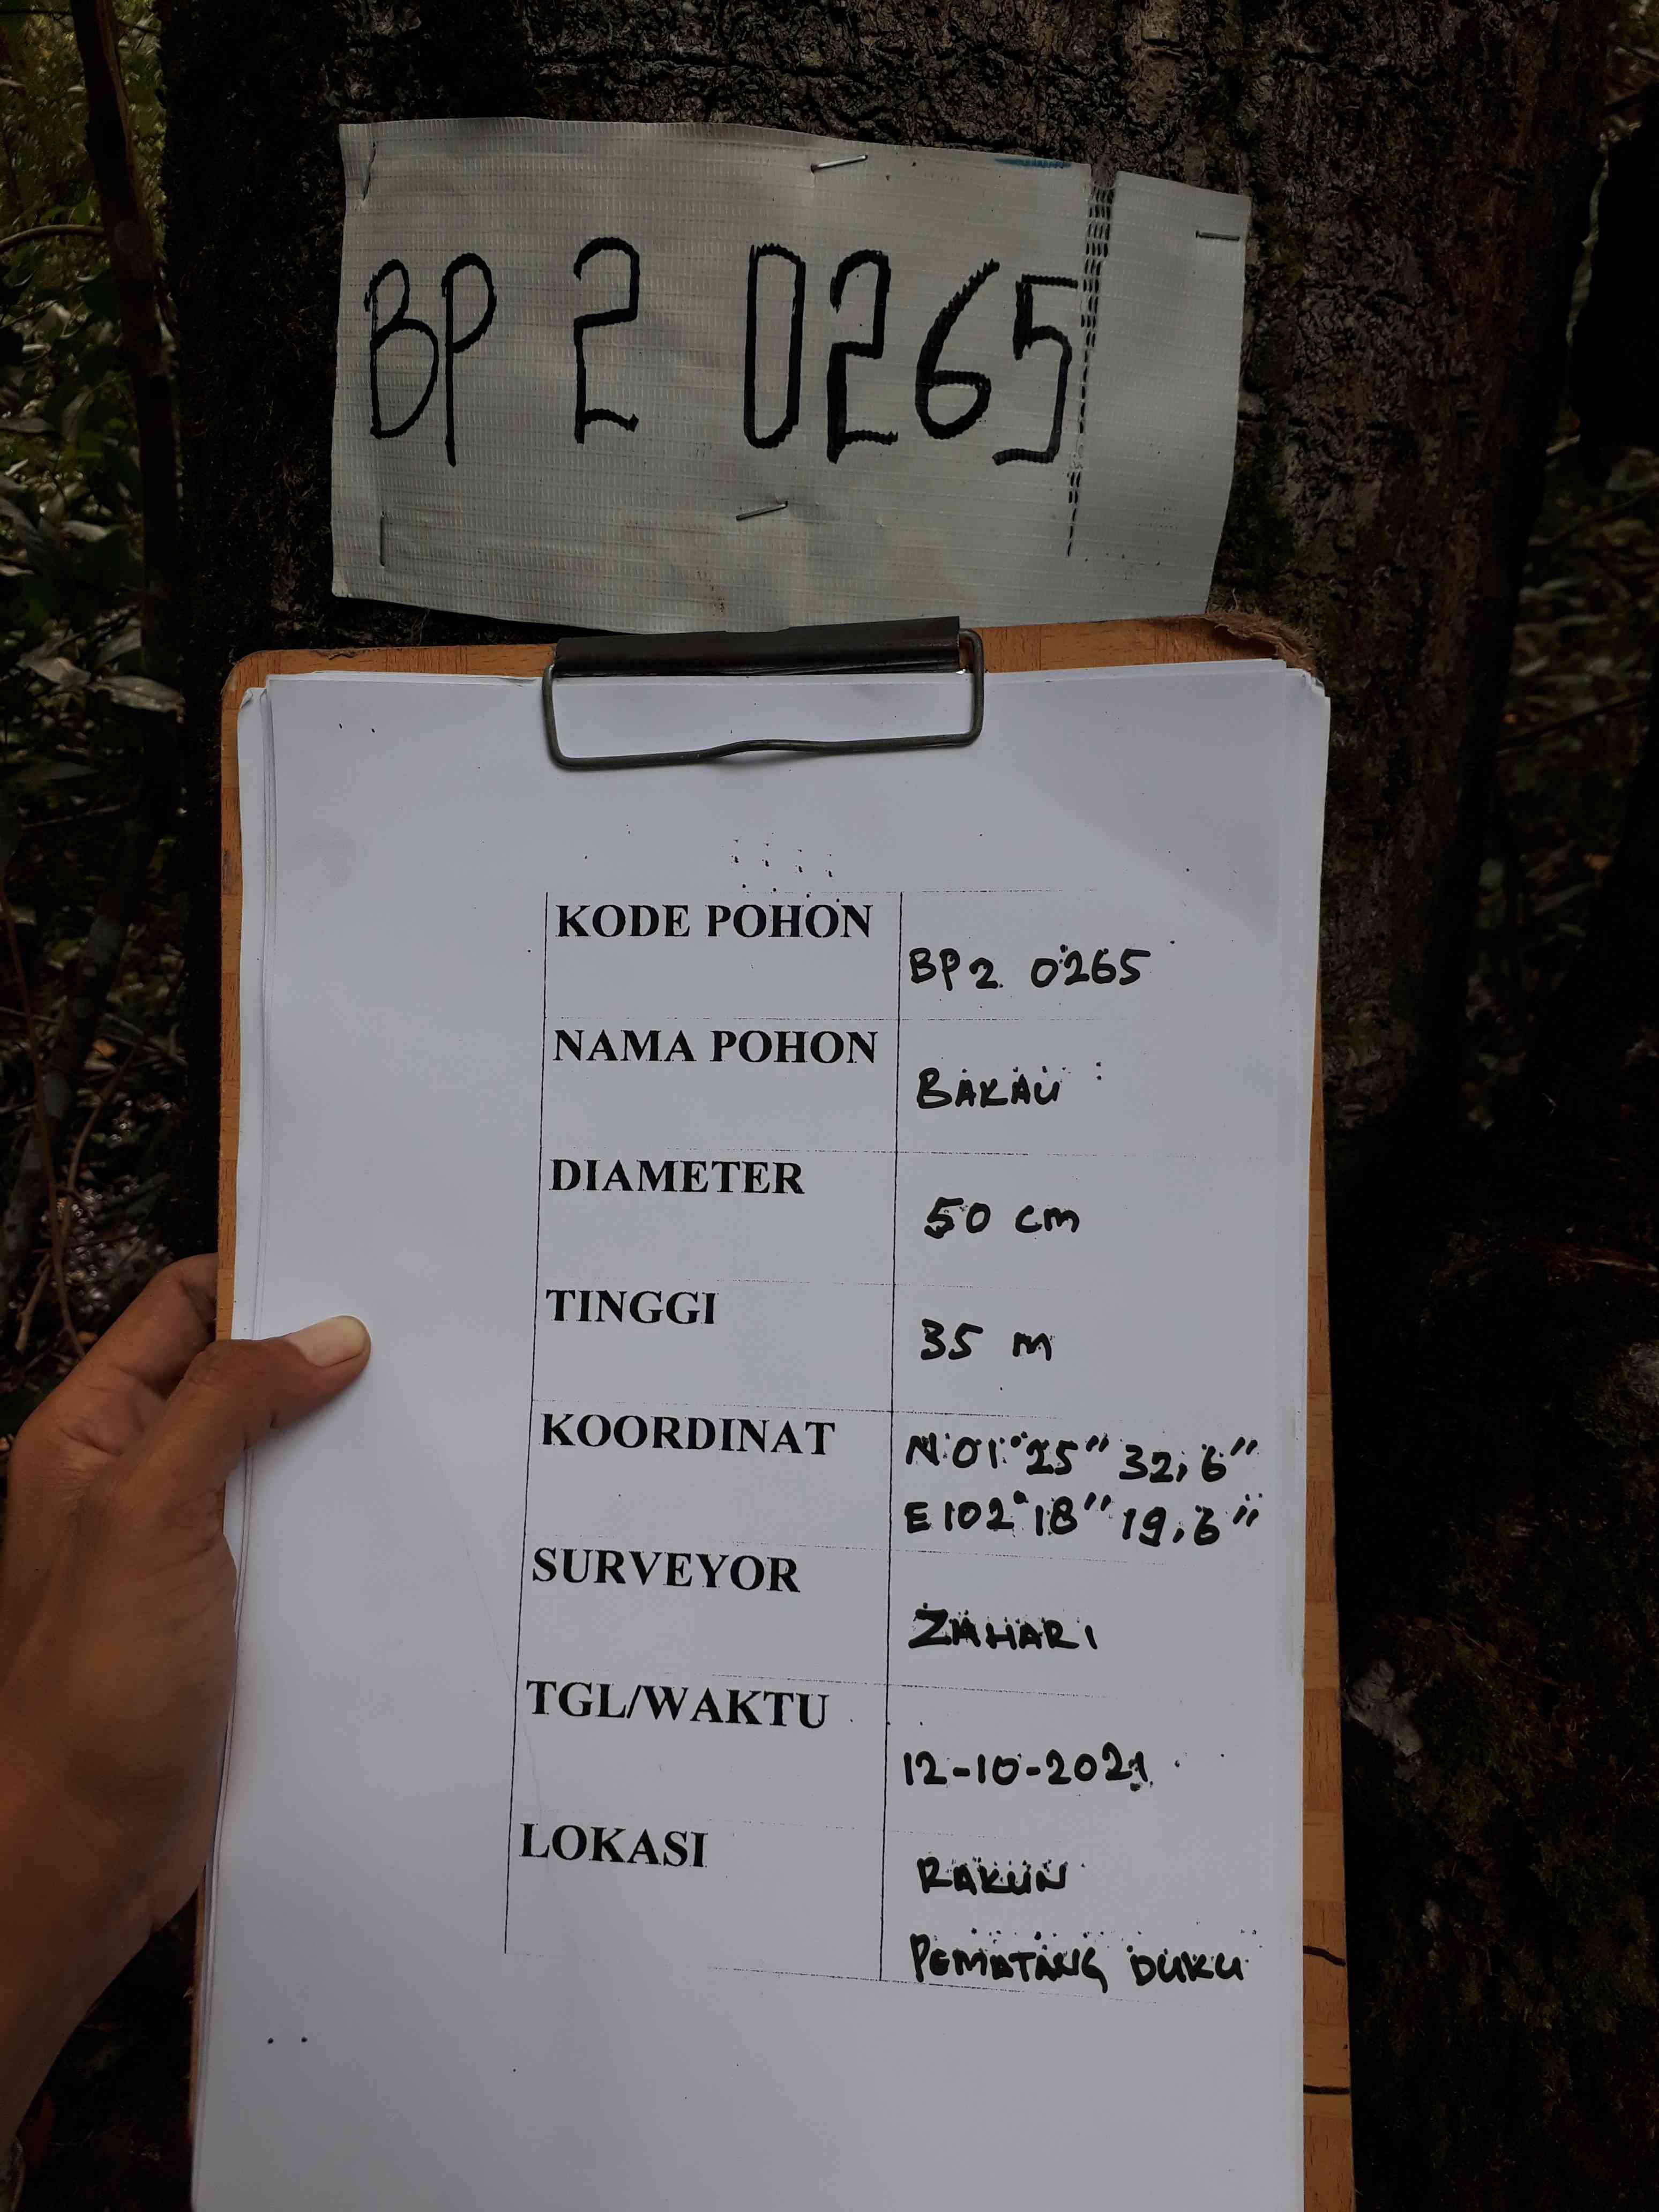 BP 2 0265
KODE POHON
BP2 0265
NAMA POHON
BAKAU
DIAMETER
50 cm
TINGGI
35 m
KOORDINAT
N 01°25" 32,6"
E 102°18" 19,6"
SURVEYOR
ZAHARI
TGL/WAKTU
12-10-2021
LOKASI
RAKUN
PEMATANG DUKU